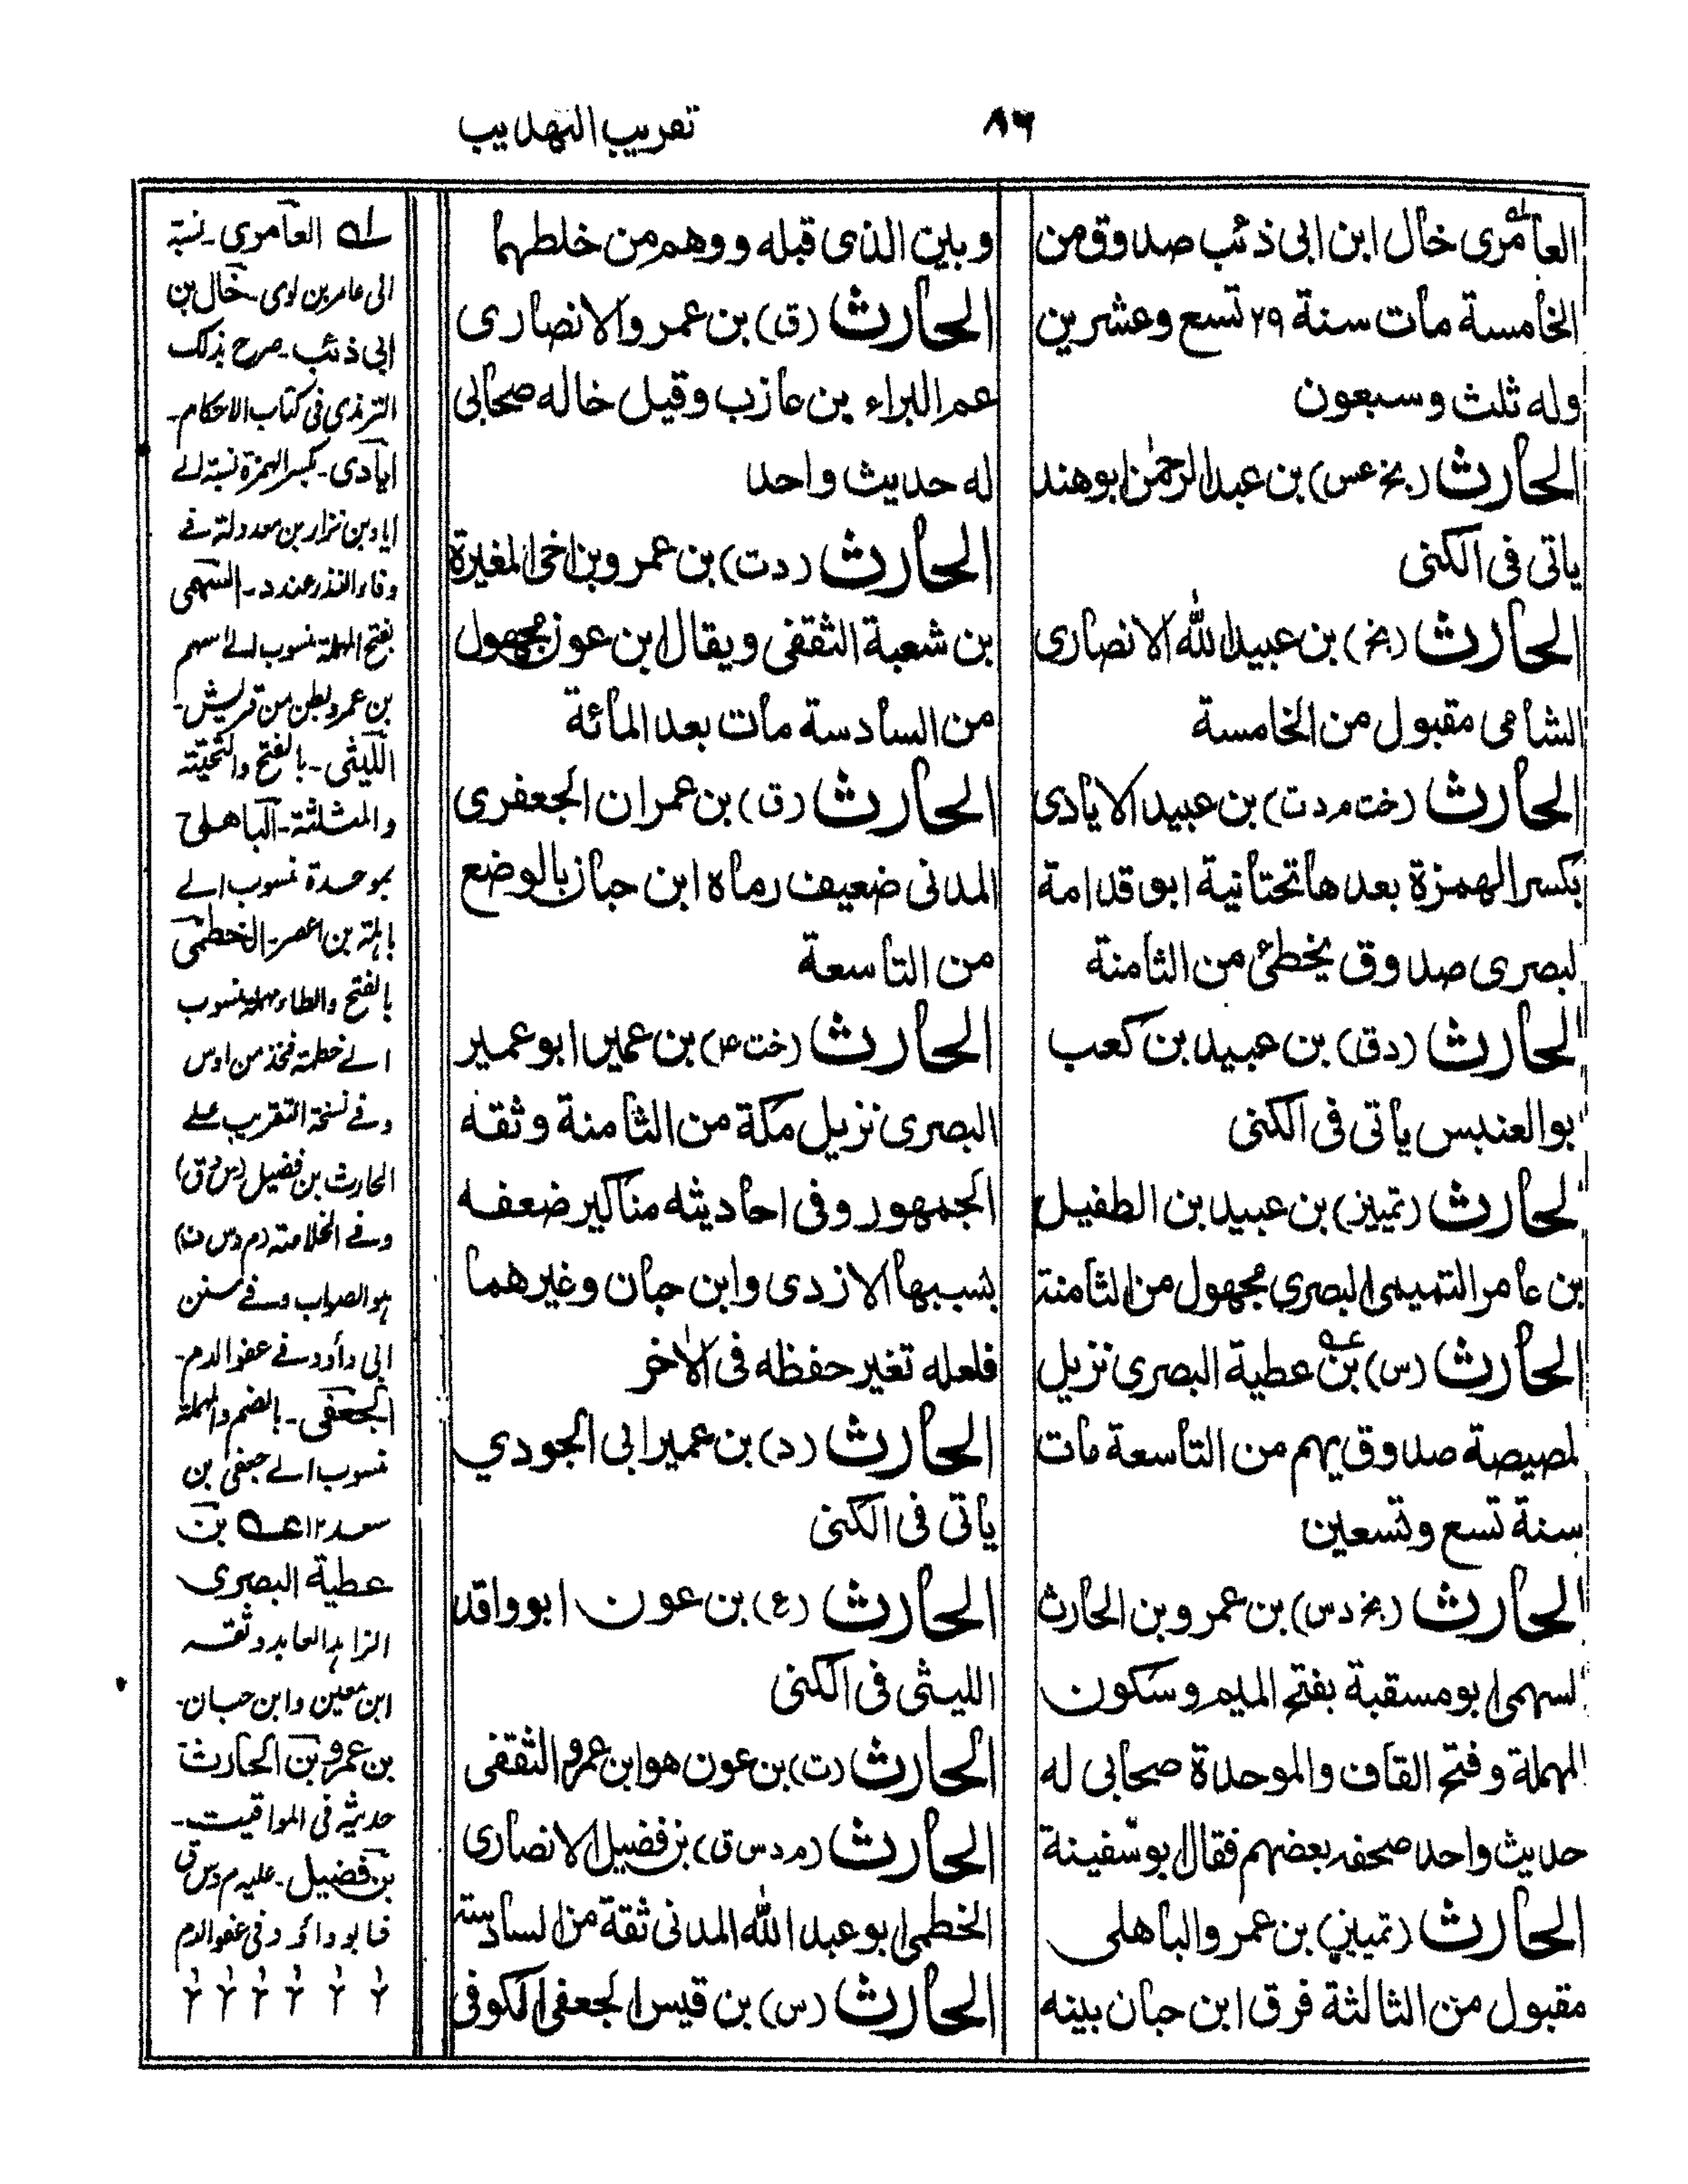 ٨٦
تقريب التهذيب
العامرى خال ابن ابى ذئب صدوق من
الخامسة مات سنة ٢٩ تسع وعشرين
وله ثلث وسبعون
الحارث (بخ عس) بن عبد الرحمٰن ابو هند
ياتى فى الكنى
الحارث (بخ) بن عبيد الله الانصارى
الشامى مقبول من الخامسة
الحارث (خت م د ت) بن عبيد الايادى
بكسر الهمزة بعدها تحتانية ابو قدامة
لبصرى صدوق يخطئ من الثامنة
لحارث (د ق) بن عبيد بن كعب
بو العنبس ياتى فى الكنى
لحارث (تمييز) بن عبيد بن الطفيل
بن عامر التميمى البصري مجهول من الثامنة
الحارث (س) بن عطية البصرى نزيل
لمصيصة صدوق يهم من التاسعة مات
سنة تسع وتسعين
الحارث (بخ د س) بن عمرو بن الحارث
لسهمى ابو مسقبة بفتح الميم وسكون
المهملة وفتح القاف والموحدة صحابى له
حديث واحد صحفه بعضهم فقال ابو سفينة
الحارث (تمييز) بن عمرو الباهلى
مقبول من الثالثة فرق ابن حبان بينه
وبين الذى قبله ووهم من خلطهما
الحارث (ق) بن عمرو الانصارى
عم البراء بن عازب وقيل خاله صحابى
له حديث واحد
الحارث (د ت) بن عمرو بن اخى المغيرة
بن شعبة الثقفى ويقال ابن عون مجهول
من السادسة مات بعد المائة
الحارث (ق) بن عمران الجعفرى
المدنى ضعيف رماه ابن حبان بالوضع
من التاسعة
الحارث (خت ٤) بن عمير ابو عمير
البصرى نزيل مكة من الثامنة وثقه
الجمهور وفى احاديثه مناكير ضعفه
بسببها الازدى وابن حبان وغيرهما
فلعله تغير حفظه فى الاٰخر
الحارث (د) بن عمير ابى الجودي
ياتى فى الكنى
الحارث (ع) بن عون ابو واقد
الليثى فى الكنى
الحارث (ت) بن عون هو ابن عمرو الثقفى
الحارث (م د س ق) بن فضيل الانصارى
الخطمى ابو عبد الله المدنى ثقة من السادسة
الحارث (س) بن قيس الجعفى الكوفى
له العامرى ـ نسبة
الى عامر بن لوى ـ خال بن
ابى ذئب ـ صرح بذلك
الترمذى فى كتاب الاحكام ـ
ايادى ـ بكسر الهمزة نسبة الے
اياد بن نزار بن معد ولة فے
وفاء النذر عند د ـ السهمى
بفتح المهملة منسوب الے سهم
بن عمرو بطن من قريش ـ
الليثى ـ بالفتح والتحتية
والمثلثة ـ الباهلى
بموحدة منسوب الے
باهلة بن اعصر ـ الخطمى
بالفتح والطاء مهملة منسوب
الے خطمة فخذ من اوس
وفے نسخة التقريب علے
الحارث بن فضيل (س ق)
وفے الخلاصة (م د س ق)
هو الصواب وفے سنن
ابى داؤد فے عفو الدم ـ
الجعفى ـ بالضم والمهملة
منسوب الے جعفى بن
سعد ١٢ عه بن
عطية البصرى
الزاهد العابد وثقه
ابن معين وابن حبان ـ
بن عمرو بن الحارث
حديثه فى المواقيت ـ
بن فضيل ـ عليه م د س ق
فابو داؤد فى عفو الدم